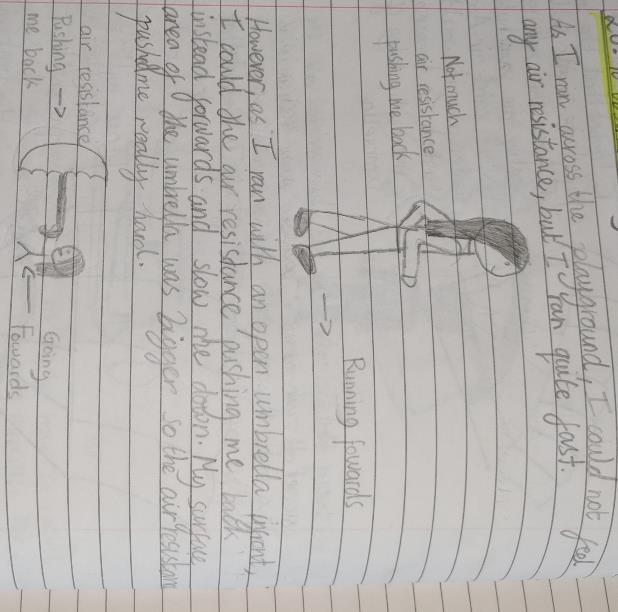 As I ran across the playground, I could not feel
any air resistance, but I ran quite fast.
Not much
air resistance
pushing me back
Running fowards
However, as I ran with an open umbrella infront,
I could the air resistance pushing me back
instead forwards and slow me down. My surface
area of the umbrella was bigger so the air resistan
pushed me really hard.
air resistance
Pushing →
me back
Going
← Fowards